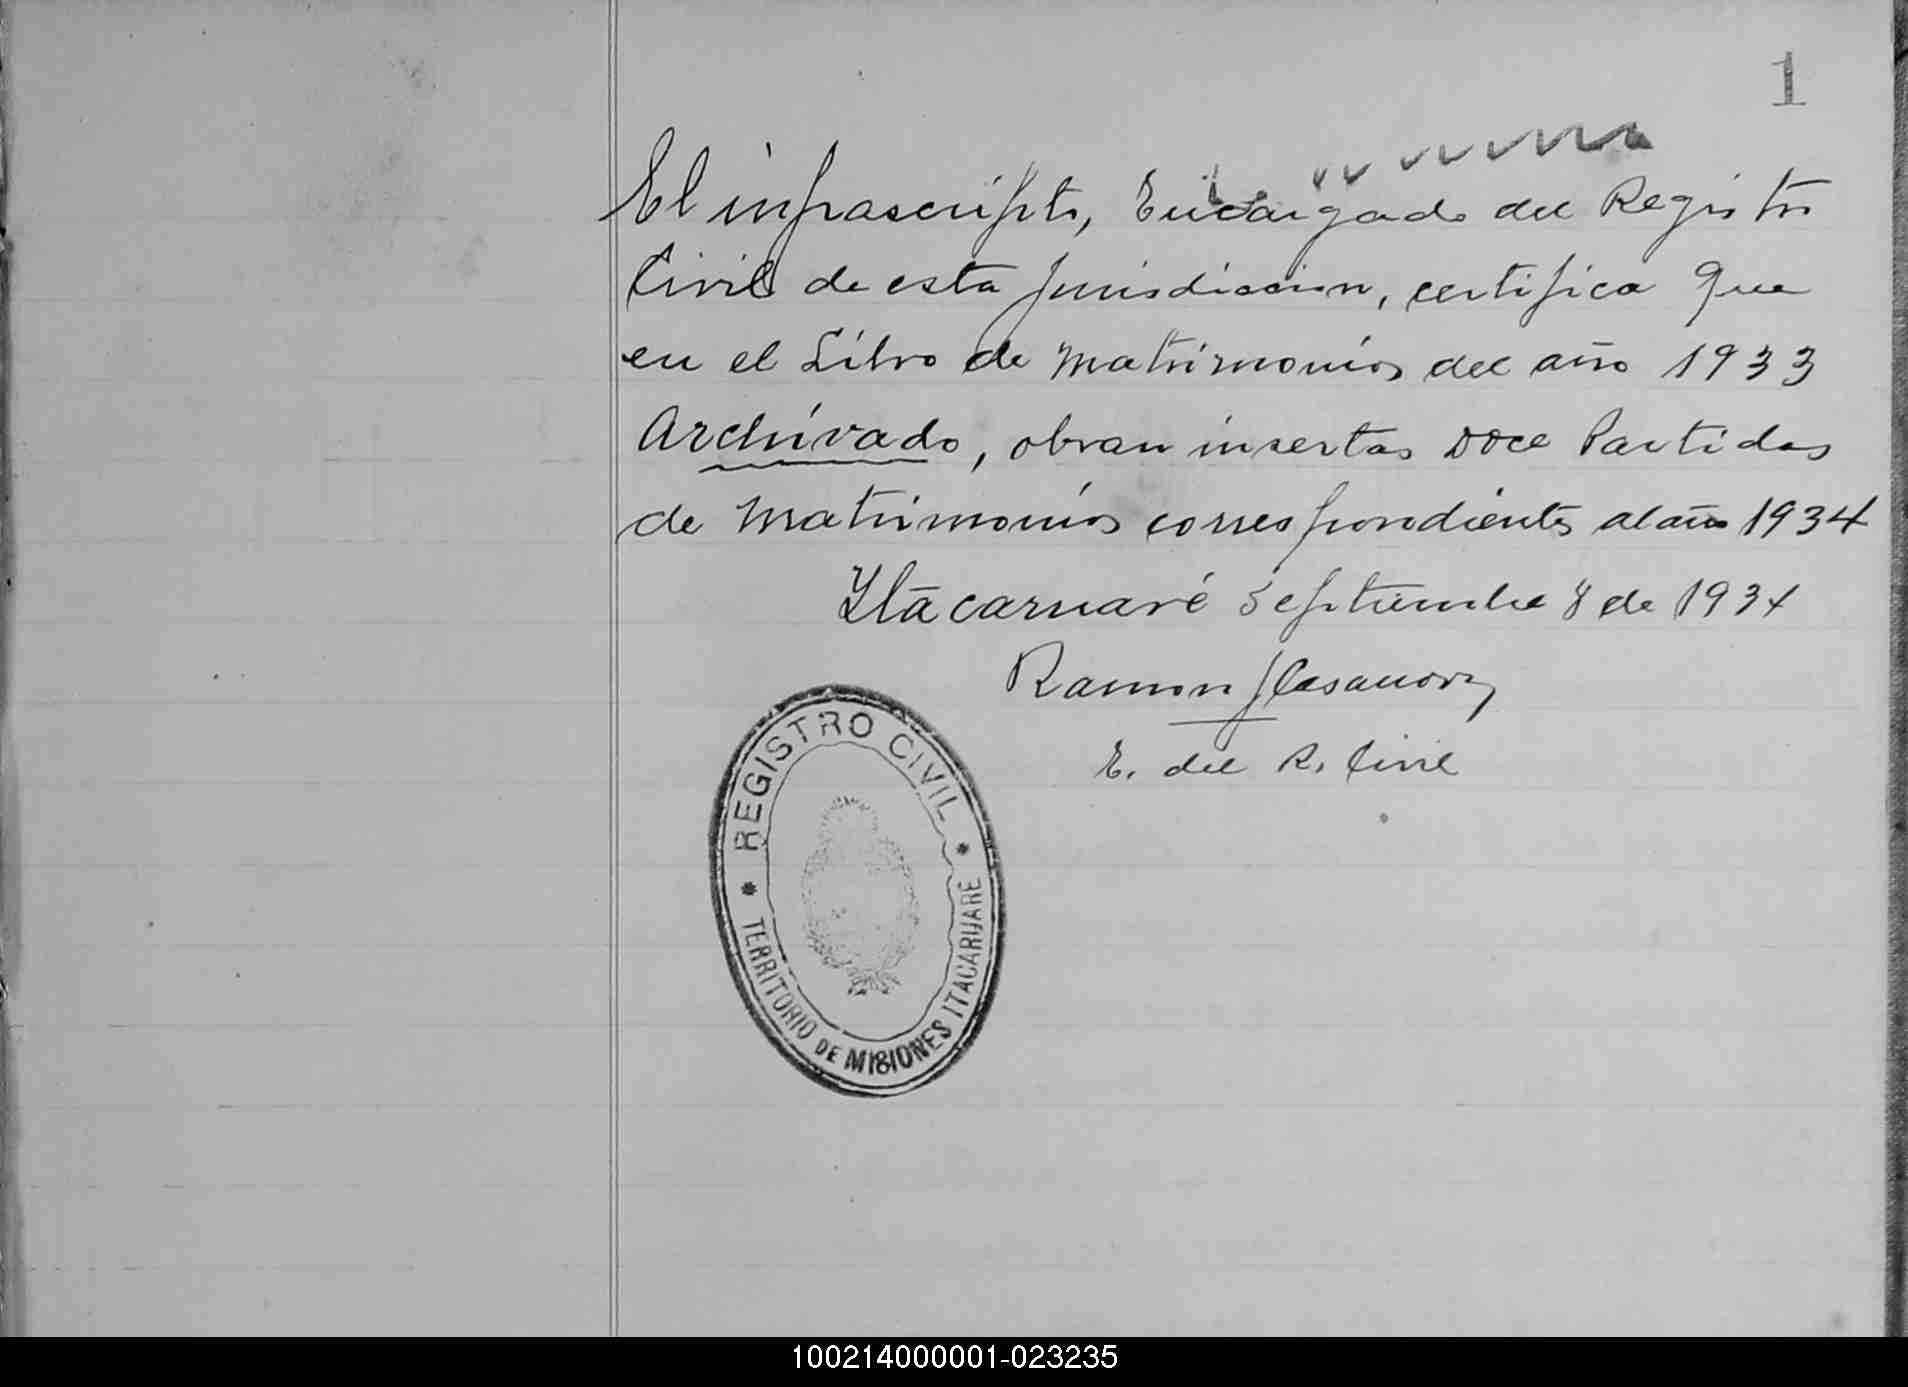 1
El infrascripto, Encargado del Registro
Civil de esta jurisdiccion, certifica que
en el Libro de Matrimonios del año 1933
Archivado, obran insertas Doce Partidas
de Matrimonios correspondientes al año 1934
Ytacaruaré Septiembre 8 de 1934
Ramon J Casanova
E. del R. Civil
REGISTRO CIVIL
TERRITORIO DE MISIONES ITACARUARÉ
100214000001-023235